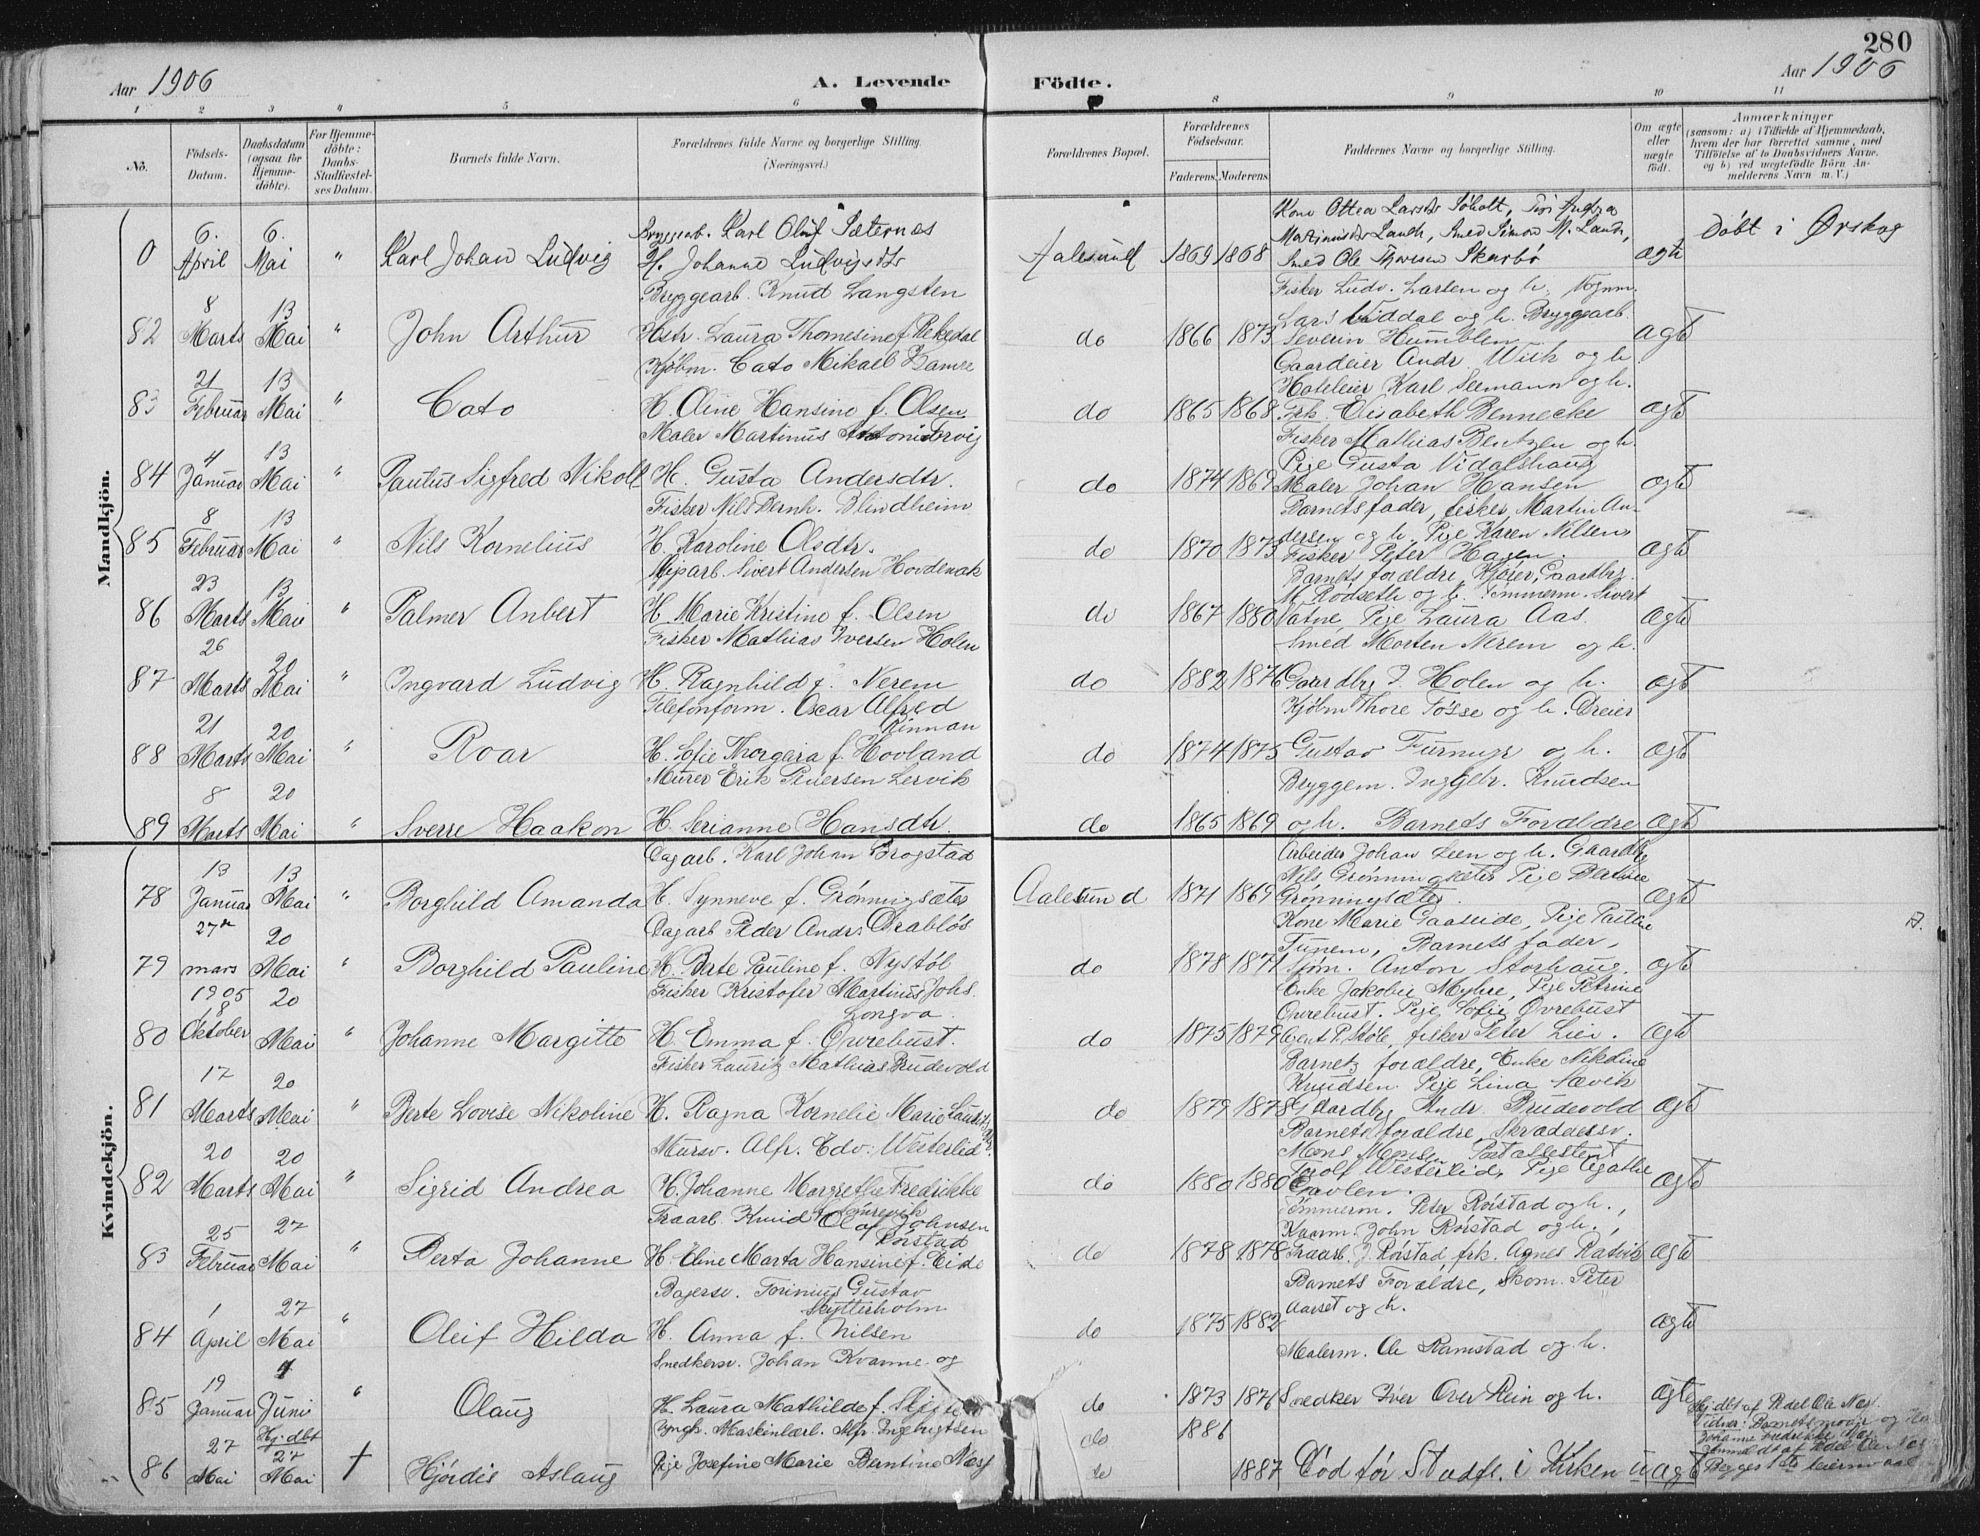 280
Aar 1906
A. Levende
Födte.
Aar 1906
1 2 3 4 5 6 8 9 10 11
No.
Födsels-Datum.
Daabsdatum (ogsaa for Hjemme-döbte).
For Hjemme-döbte: Daabs-Stadfæstel-ses Datum.
Barnets fulde Navn.
Forældrenes fulde Navne og borgerlige Stilling. (Næringsvei.)
Forældrenes Bopæl.
Forældrenes Födselsaar.
Faderens. Moderens.
Faddernes Navne og borgerlige Stilling.
Om ægte eller uægte födt.
Anmærkninger
(saasom: a) i Tilfælde af Hjemmedaab, hvem der har forrettet samme, med Tilföielse af to Daabsvidners Navne, og b) ved uægtefödte Börn An-melderens Navn m. V.)
Mandkjön.
0 6. April 6. Mai " Karl Johan Ludvig
Bryggearb. Karl Oluf Sæternes
H. Johanne Ludvigsdtr
Aalesund 1869 1868
Kone Ottea Larsdtr Sjøholt,
Smed Simon M. Landr,
Smed Ole Thoresen Skarbø
ægte Døbt i Ørskog
82 8 Marts 13 Mai " John Arthur
Bryggearb. Knud Langsten
Hstr. Laura Thomesine f. Rekdal
do 1866 1873
Fisker Ludv. Larsen og h.
Lars Viddal og h. Bryggearb.
Severin Humblen
ægte
83 21 Februar 13 Mai " Cato
Kjøbm. Cato Mikael Hamre
H. Oline Hansine f. Olsen
do 1865 1868
Gaardeier Andr. Wiik og h
Hoteleier Karl Seemann og h.
Frk. Elisabeth Bennecke
ægte
84 4 Januar 13 Mai " Paulus Sigfred Nikolai
Maler Martinus Antoni Tervig
H. Gusta Andersdtr.
do 1874 1869
Fisker Mathias Bentzen og h.
Pige Gusta Vidalshaug
Maler Johan Hansen
ægte
85 8 Februar 13 Mai " Nils Kornelius
Fisker Nils Bernh. Blindheim
H. Karoline Olsdtr.
do 1870 1873
Barnets fader, fisker Martin An-
dersen og h. Pige Karen Nilsen
Fisker Peter Hagen.
ægte
86 23 Marts 13 Mai " Palmer Anbert
Sivert Andersen Hovdenak
H. Marie Kristine f. Olsen
do 1867 1880
Barnets forældre, Gaardbr.
M. Rødseth og h. Tømmerm. Sivert
Vatne, Pige Laura Aas.
ægte
87 26 Marts 20 Mai " Ingvard Ludvig
Fisker Mathias Iversen Holen
H. Ragnhild f. Nerem
do 1882 1876
Smed Morten Nerem og h.
Gaardbr J. Holen og h.
ægte
88 21 Marts 20 Mai " Roar
Telefonform. Oscar Alfred
Rinnan
H. Sofie Thorgeira f. Hovland
do 1874 1875
Kjøbm Thore Fosse og h. Dreier
Gustav Furnuge og h.
ægte
89 8 Marts 20 Mai " Sverre Haakon
Murer Erik Petersen Lervik
H. Serianne Hansdtr.
do 1865 1869
Bryggem. Inggebr. Knudsen
og h. Barnets Forældre
ægte
Kvindekjön.
78 13 Januar 13 Mai " Borghild Amanda
Dagarb. Karl Johan Brogstad
H. Synneve f. Grønningsæter
Aalesund 1871 1869
Arbeider Johan Leen og h. Gaardbr
Nils Grønningsæter Pige Bertine
Grønningsæter.
ægte
79 27de mars 20 Mai " Borghild Pauline
Dagarb Peder Andr. Drabløs
H. Berte Pauline f. Nystøl
do 1878 1871
Kone Marie Gaaseide, Pige Pauline
Tunem, Barnets fader,
Sjøm. Anton Storhaug.
ægte
80 1905 18 Oktober 20 Mai " Johanne Margitte
Fisker Kristofer Martinus Johs.
Longva.
H. Emma f. Øvrebust.
do 1875 1879
Enke Jakobie Myhre, Pige Petrine
Øvrebust. Pige Sofie Øvrebust
Agent P. Støle, fisker Peter Lien.
ægte
81 17 Marts 20 Mai " Berte Lovise Nikoline
Fisker Lauritz Mathias Brudevold
H. Ragna Kornelie Marie
do 1879 1878
Barnets forældre, Enke Nikoline
Knudsen Pige Lina Sævik
Gaardbr Andr. Brudevold
ægte
82 20 Marts 20 Mai " Sigrid Andrea
Mursv. Alfr. Edv. Westerlid.
H. Johanne Margrethe Fredrikke
do 1880 1880
Barnets forældre, Skræddersv.
Mons Monsen, Postassistent
Torolf Westerlid, Pige Agathe
Gavlen.
ægte
83 25 Februar 27 Mai " Berta Johanne
Traarb. Knud Olaf Johnsen
Rørstad
H. Eline Marta Hansine f. Eide
do 1878 1878
Tømmerm. Peter Rørstad og h.,
Kaarm. John Rørstad og h.,
Traarb. J. Rørstad, frk. Agnes Ratvik
ægte
84 1 April 27 Mai " Oleif Hilda
Bagersv. Torinus Gustav
Skytterholm
H. Anna f. Nilsen
do 1875 1882
Barnets Forældre, Skom. Peter
Aarset og h.
ægte
85 19 Januar 4 Juni " Olaug
Snedkersv. Johan Kvanne og
H. Laura Mathilde f.
do 1873 1876
Malerm. Ole Ramstad og h.
Snedker Iver Over Rein og h.
ægte
86 27 Mai Hj. dbt 27 Mai † Hjørdis Aslaug
Ungk. Maskinlærl. Alfr. Ingebrigtsen
Pige Josefine Marie Berntine Næss
do 1886
do 1887
Død før Stadf. i Kirken uægte
Hj. dbt af Pedel Ole Næss.
Vidner: Barnets moder og
Johanne Fredrikke Næs
Anmeldt af Pedel Ole Næss
Begges 1ste leiermaal